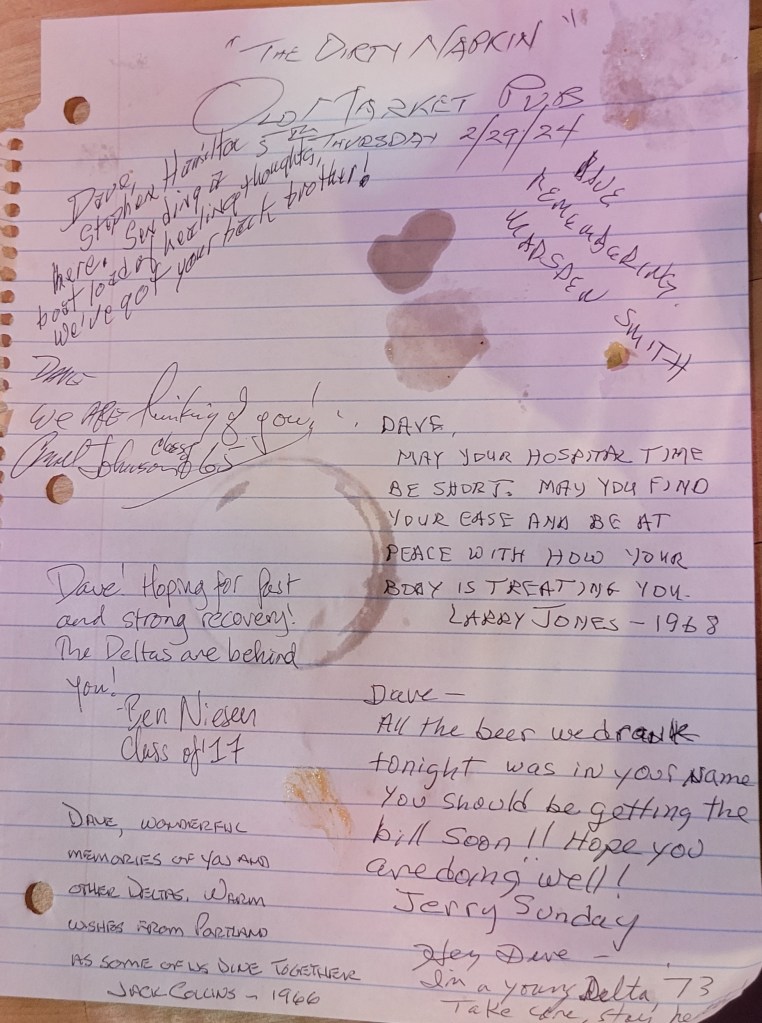 "THE DIRTY NAPKIN"
OLD MARKET PUB
5TH THURSDAY 2/29/24
Dave,
Stephen Hamilton
here. Sending a
boat load of healing thoughts,
we've got your back brother!
REMEMBERING
MARSDEN SMITH
DAVE
WE ARE thinking of you!
Johnson class of 65
DAVE,
MAY YOUR HOSPITAL TIME
BE SHORT. MAY YOU FIND
YOUR EASE AND BE AT
PEACE WITH HOW YOUR
BODY IS TREATING YOU.
LARRY JONES - 1968
Dave! Hoping for fast
and strong recovery!
The Deltas are behind
you!
-Ben Niesen
Class of '17
Dave -
All the beer we drank
tonight was in your name
You should be getting the
bill soon!! Hope you
are doing well!
Jerry Sunday
DAVE, WONDERFUL
MEMORIES OF YOU AND
OTHER DELTAS. WARM
WISHES FROM PORTLAND
AS SOME OF US DINE TOGETHER
JACK COLLINS - 1966
Hey Dave -
I'm a young Delta, '73
Take care, stay he